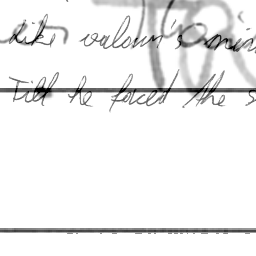 Like valour's min
Till he faced the s